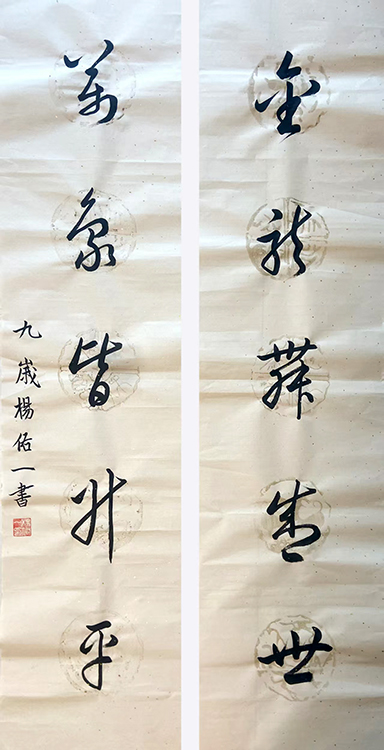 金龍舞盛世
萬象皆升平
九歲楊佑一書